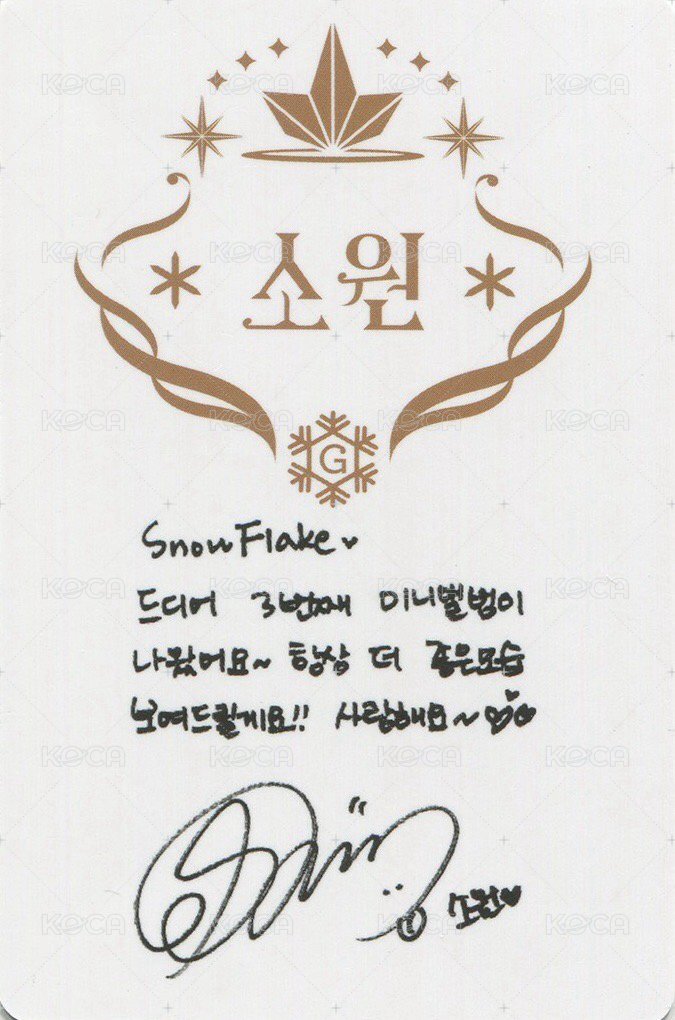 소원
G
Snow Flake
드디어 3번째 미니앨범이
나왔어요~ 항상 더 좋은모습
보여드릴게요!! 사랑해요~
소원
KOCA